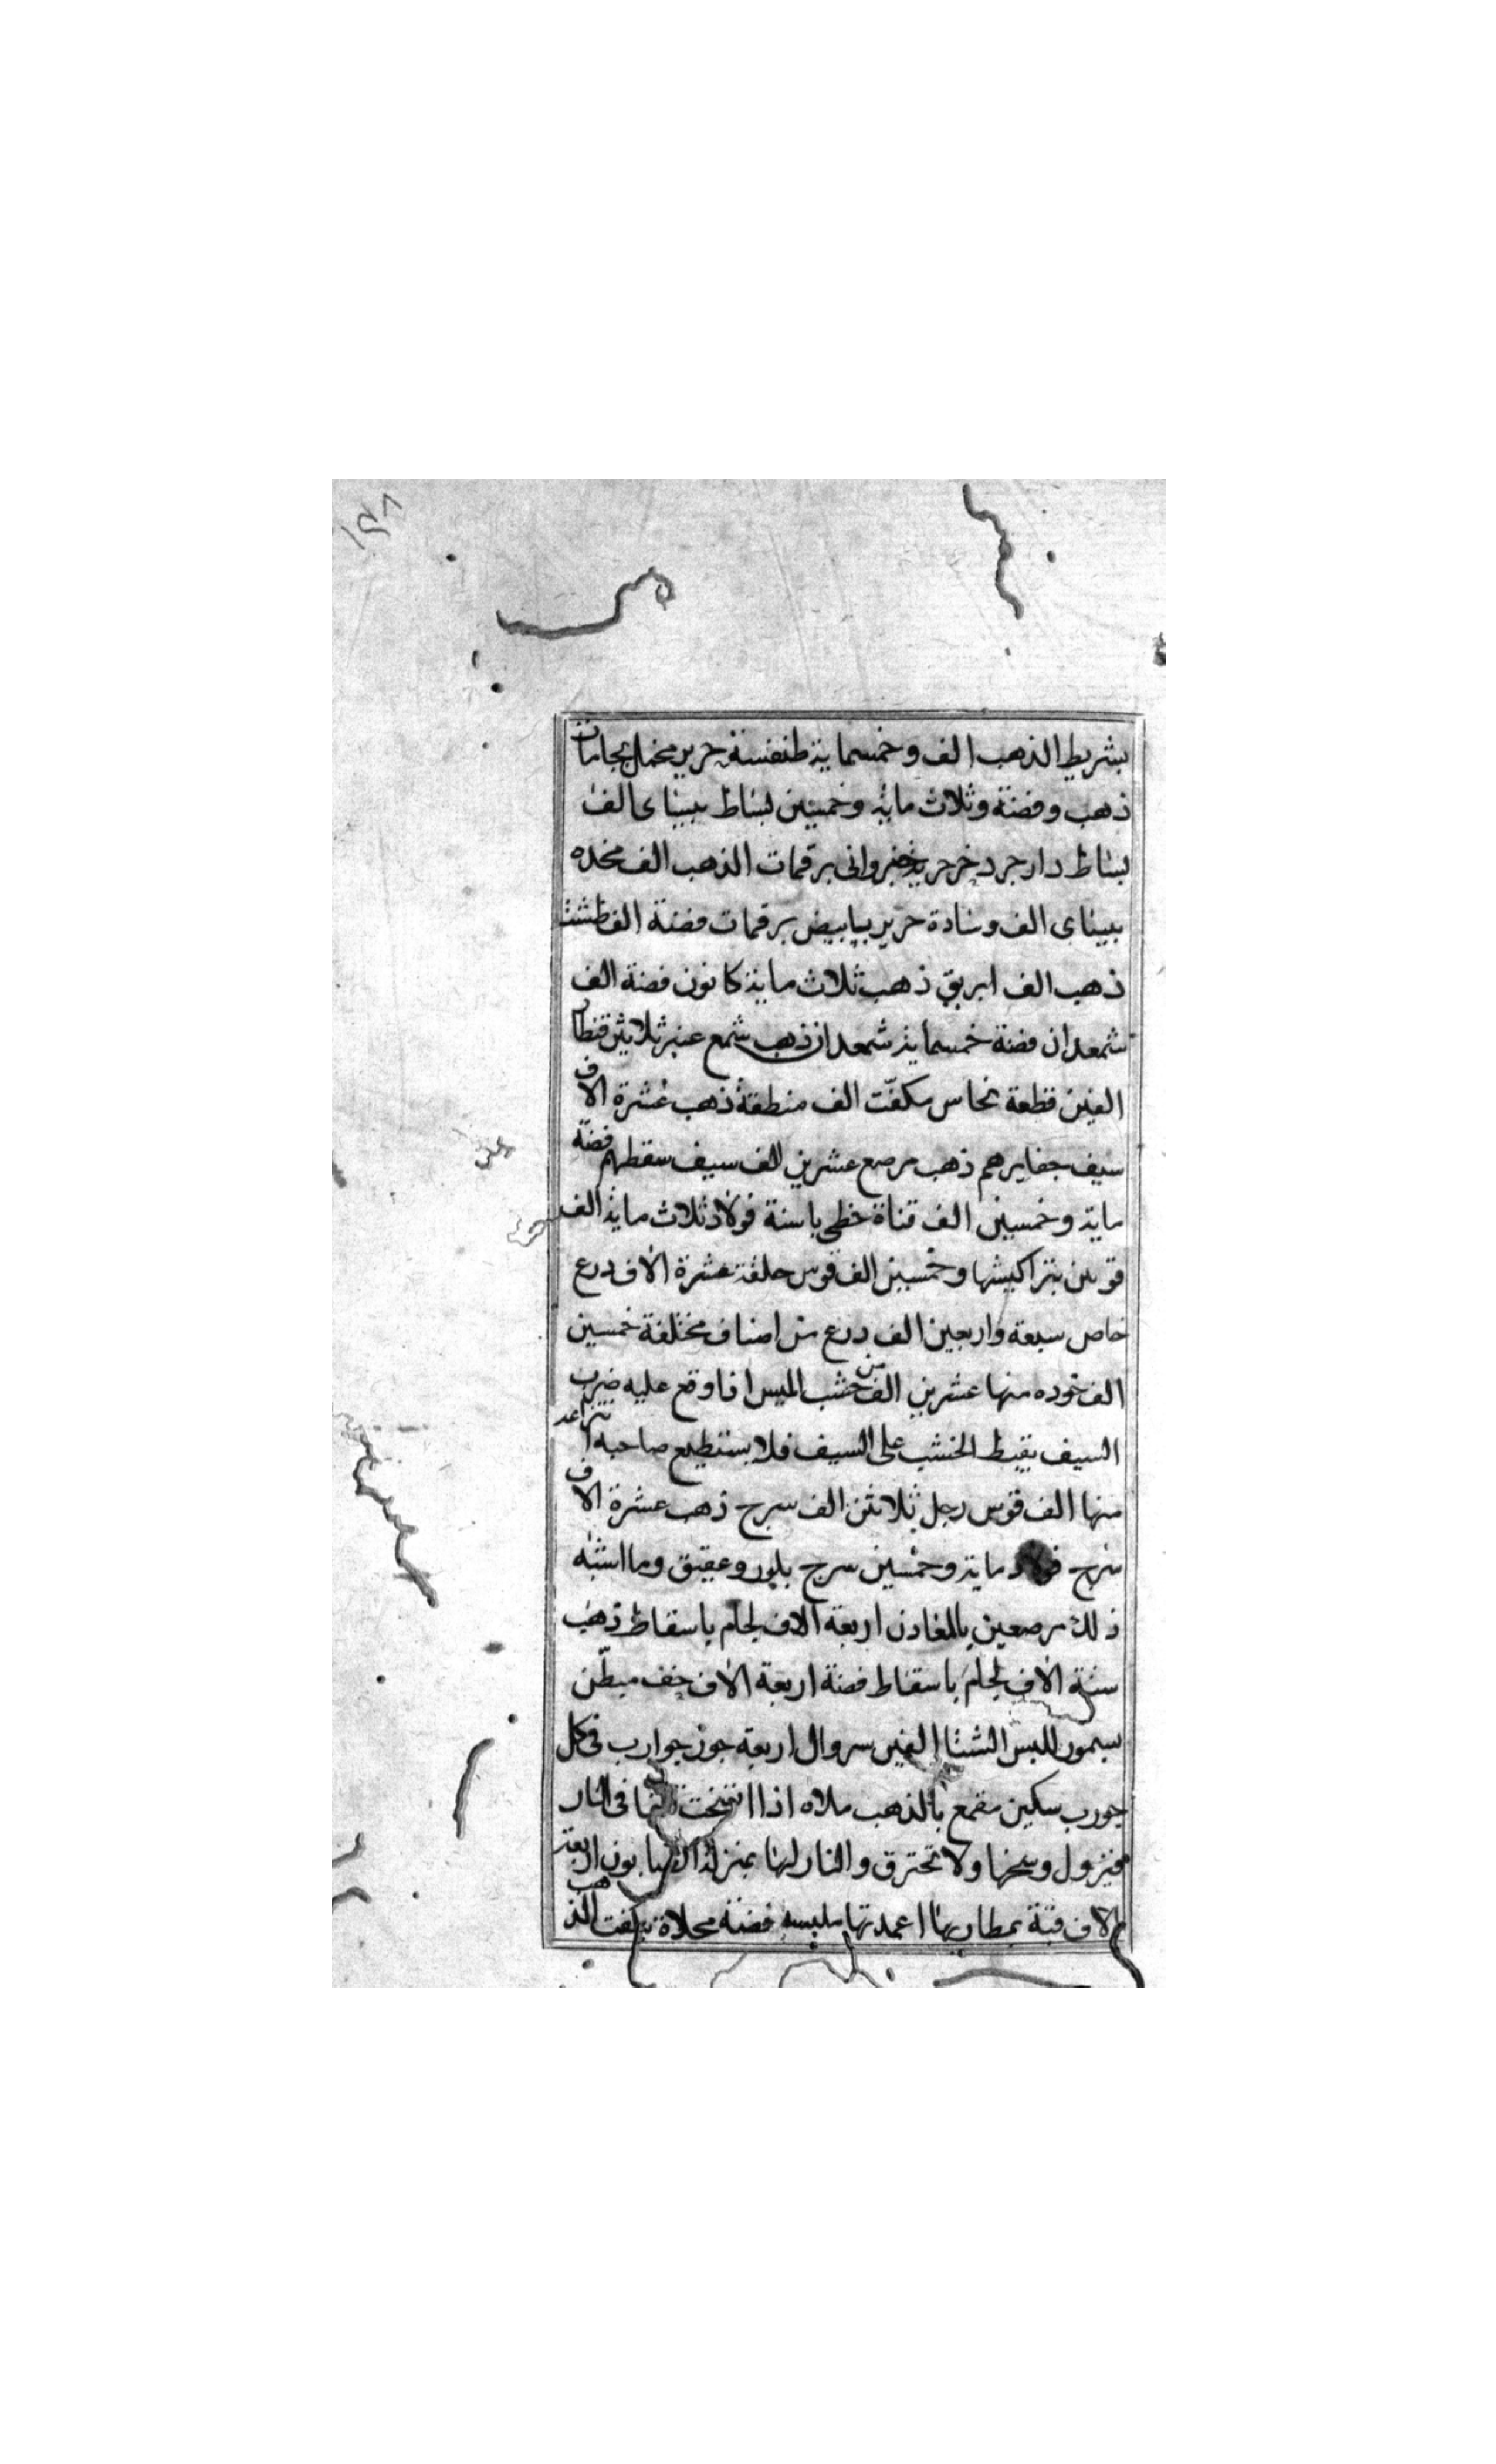 بشريط الذهب الف وخمسماية طنفسة حرير مخمل بجامات
ذهب وفضة وثلاث ماية وخمسين بساط بيساى الف
بساط دارجرد خز حرير برقمات الذهب الف مخده
بيساى الف وسادة حرير بيابيض برقمات فضة الف طشت
ذهب الف ابريق ذهب ثلاث ماية كانون فضة الف
شمعدان فضة خمسماية شمعدان ذهب شمع عنبر ثلاثين قنطار
الفين قطعة نحاس مكفّت الف منطقة ذهب عشرة الاف
سيف جفايرهم ذهب مرصع عشرين الف سيف سقطهم فضة
ماية وخمسين الف قناة خطى باسنة فولاد ثلاث ماية الف
قوس بتراكيشها وخمسين الف قوس حلقة عشرة الاف درع
خاص سبعة واربعين الف درع من اصناف مختلفة خمسين
الف خوده منها عشرين الف من خشب الميس اذا وقع عليه ضرب
السيف يقبط الخشب على السيف فلا يستطيع صاحبه انتزاعه
منها الف قوس رجل ثلاثين الف سرج ذهب عشرة الاف
سرج فولاد ماية وخمسين سرج بلور وعقيق وما اشبه
ذلك مرصعين بالمعادن اربعة الاف لجام باسقاط ذهب
ستة الاف لجام باسقاط فضة اربعة الاف خف مبطّن
بسمور للبس الشتا الفين سروال اربعة جوز جوارب فى كل
جورب سكين مقمع بالذهب ملاه اذا اتسخت القها فى النار
فيزول وسخها ولا تحترق والنار لها بمنزلة الصابون اربعة
الاف قبة بمطاريها اعمدتها ملبسه فضة محلاة بكفت الذهب